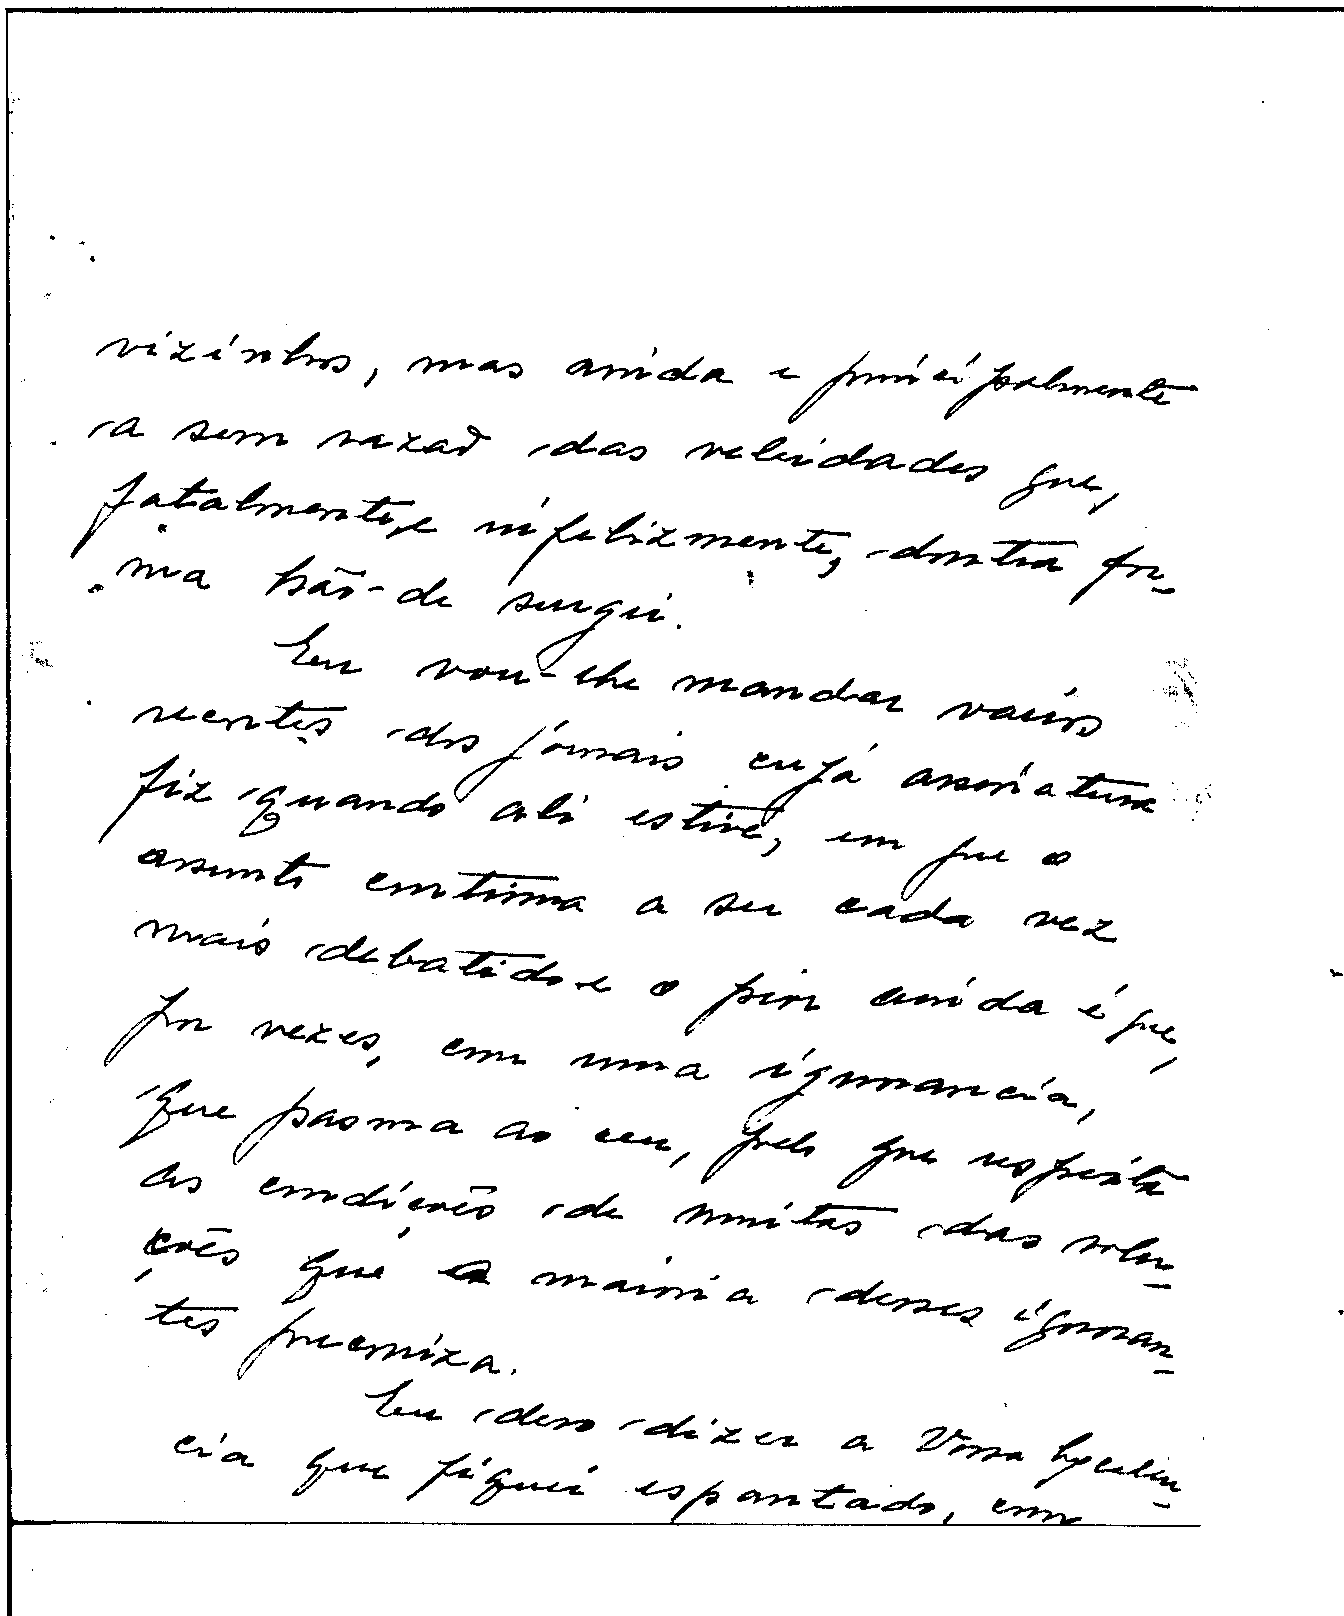 vizinhos, mas ainda e principalmente
a sem razaõ das veleidades que,
fatalmente, e infelizmente, doutra for-
ma hão-de surgir.
Eu vou-lhe mandar varios
recortes dos jornais cujá assinatura
fiz quando ali estive, em que o
assunto continua a ser cada vez
mais debatido e o pior ainda é que,
por vezes, com uma ignorancia,
que pasma ao ceu, pelo que respeita
as condições de muitas das solu-
ções que a maioria desses ignoran-
tes preconiza.
Eu devo dizer a Vossa Excelen-
cia que fiquei espantado, com